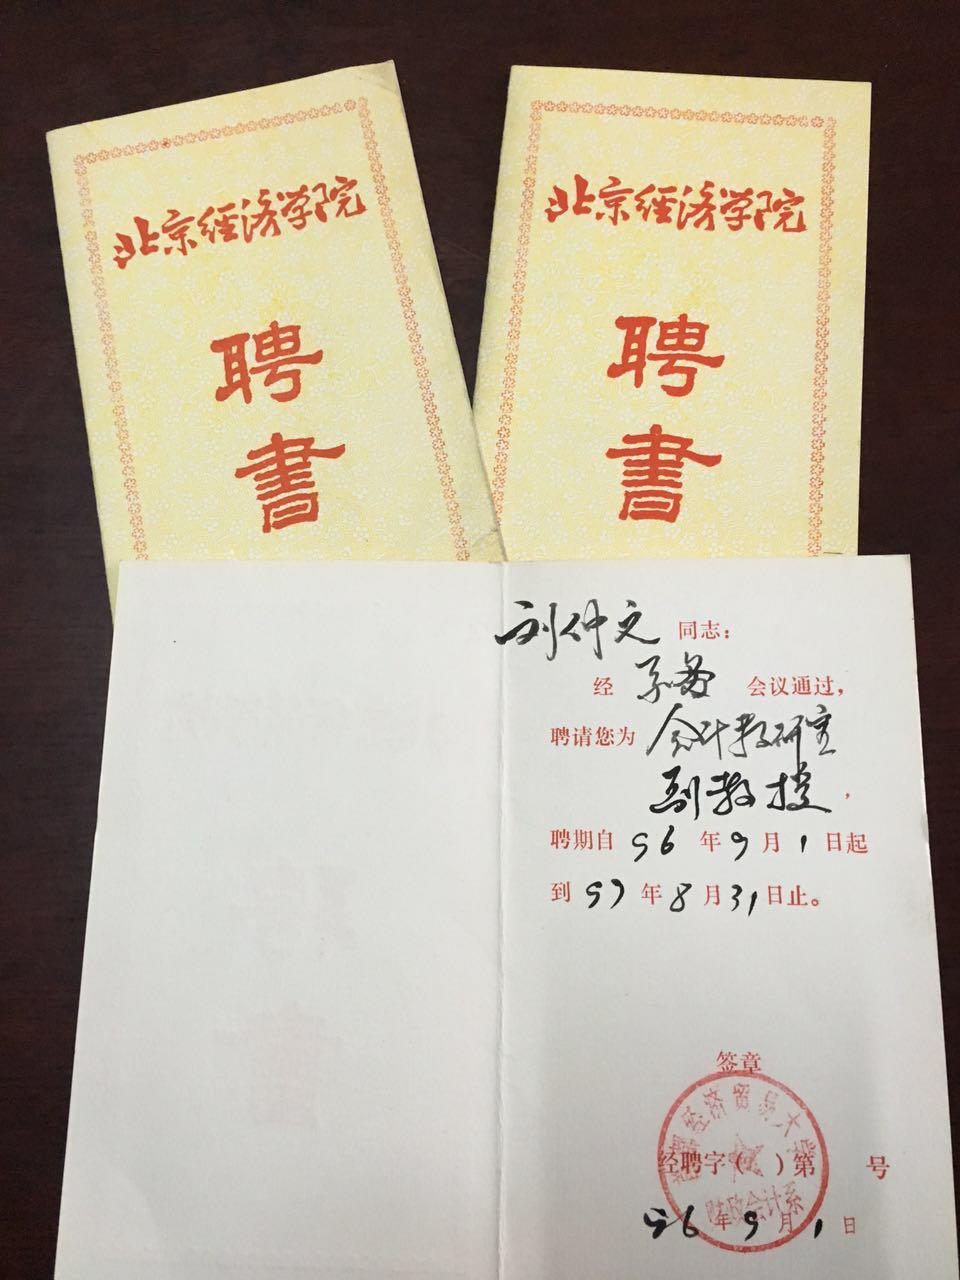 北京经济学院
聘
書
北京经济学院
聘
書
刘仲文 同志：
经 系务 会议通过，
聘请您为 会计教研室
副教授，
聘期自 96 年 9 月 1 日起
到 97 年 8 月 31 日止。
签章
首都经济贸易大学
财政会计系
经聘字（ ）第 号
96 年 9 月 1 日